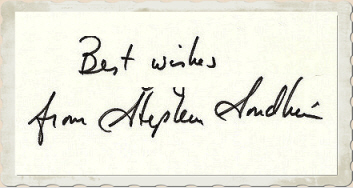 Best wishes
from Stephen Sondheim